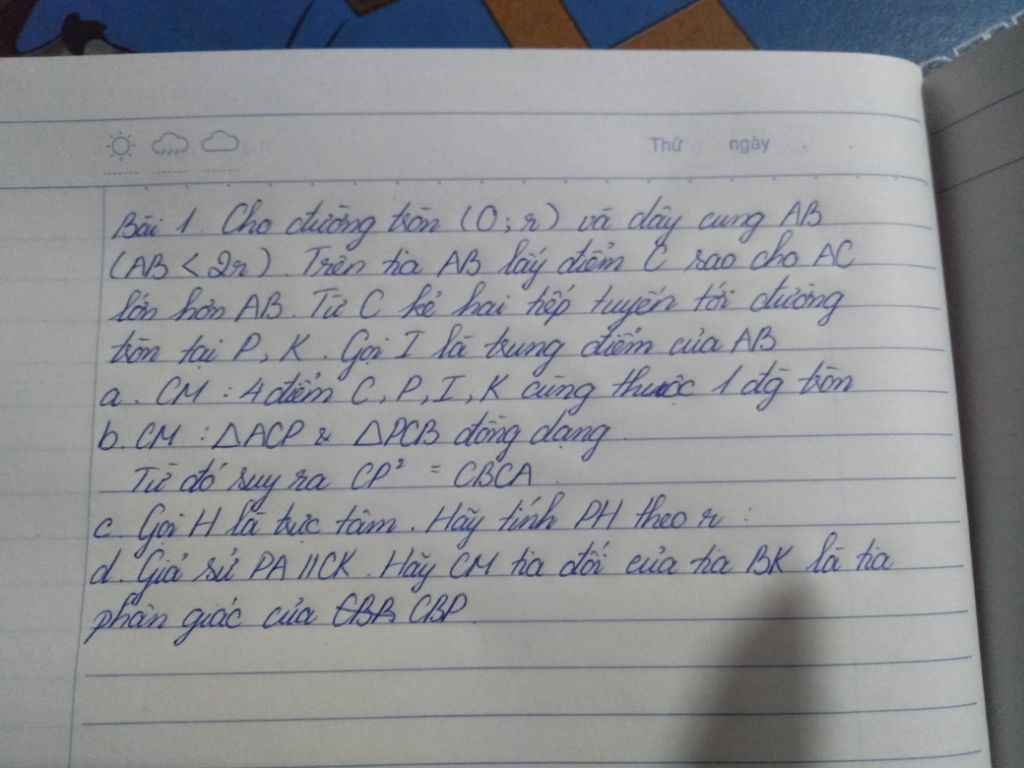 Thứ ngày
Bài 1. Cho đường tròn (O; r) và dây cung AB
(AB < 2r). Trên tia AB lấy điểm C sao cho AC
lớn hơn AB. Từ C kẻ hai tiếp tuyến tới đường
tròn tại P, K. Gọi I là trung điểm của AB
a. CM : 4 điểm C, P, I, K cùng thuộc 1 đg tròn
b. CM : △ACP & △PCB đồng dạng.
Từ đó suy ra CP² = CBCA.
c. Gọi H là trực tâm. Hãy tính PH theo r :
d. Giả sử PA // CK. Hãy CM tia đối của tia BK là tia
phân giác của CBP.